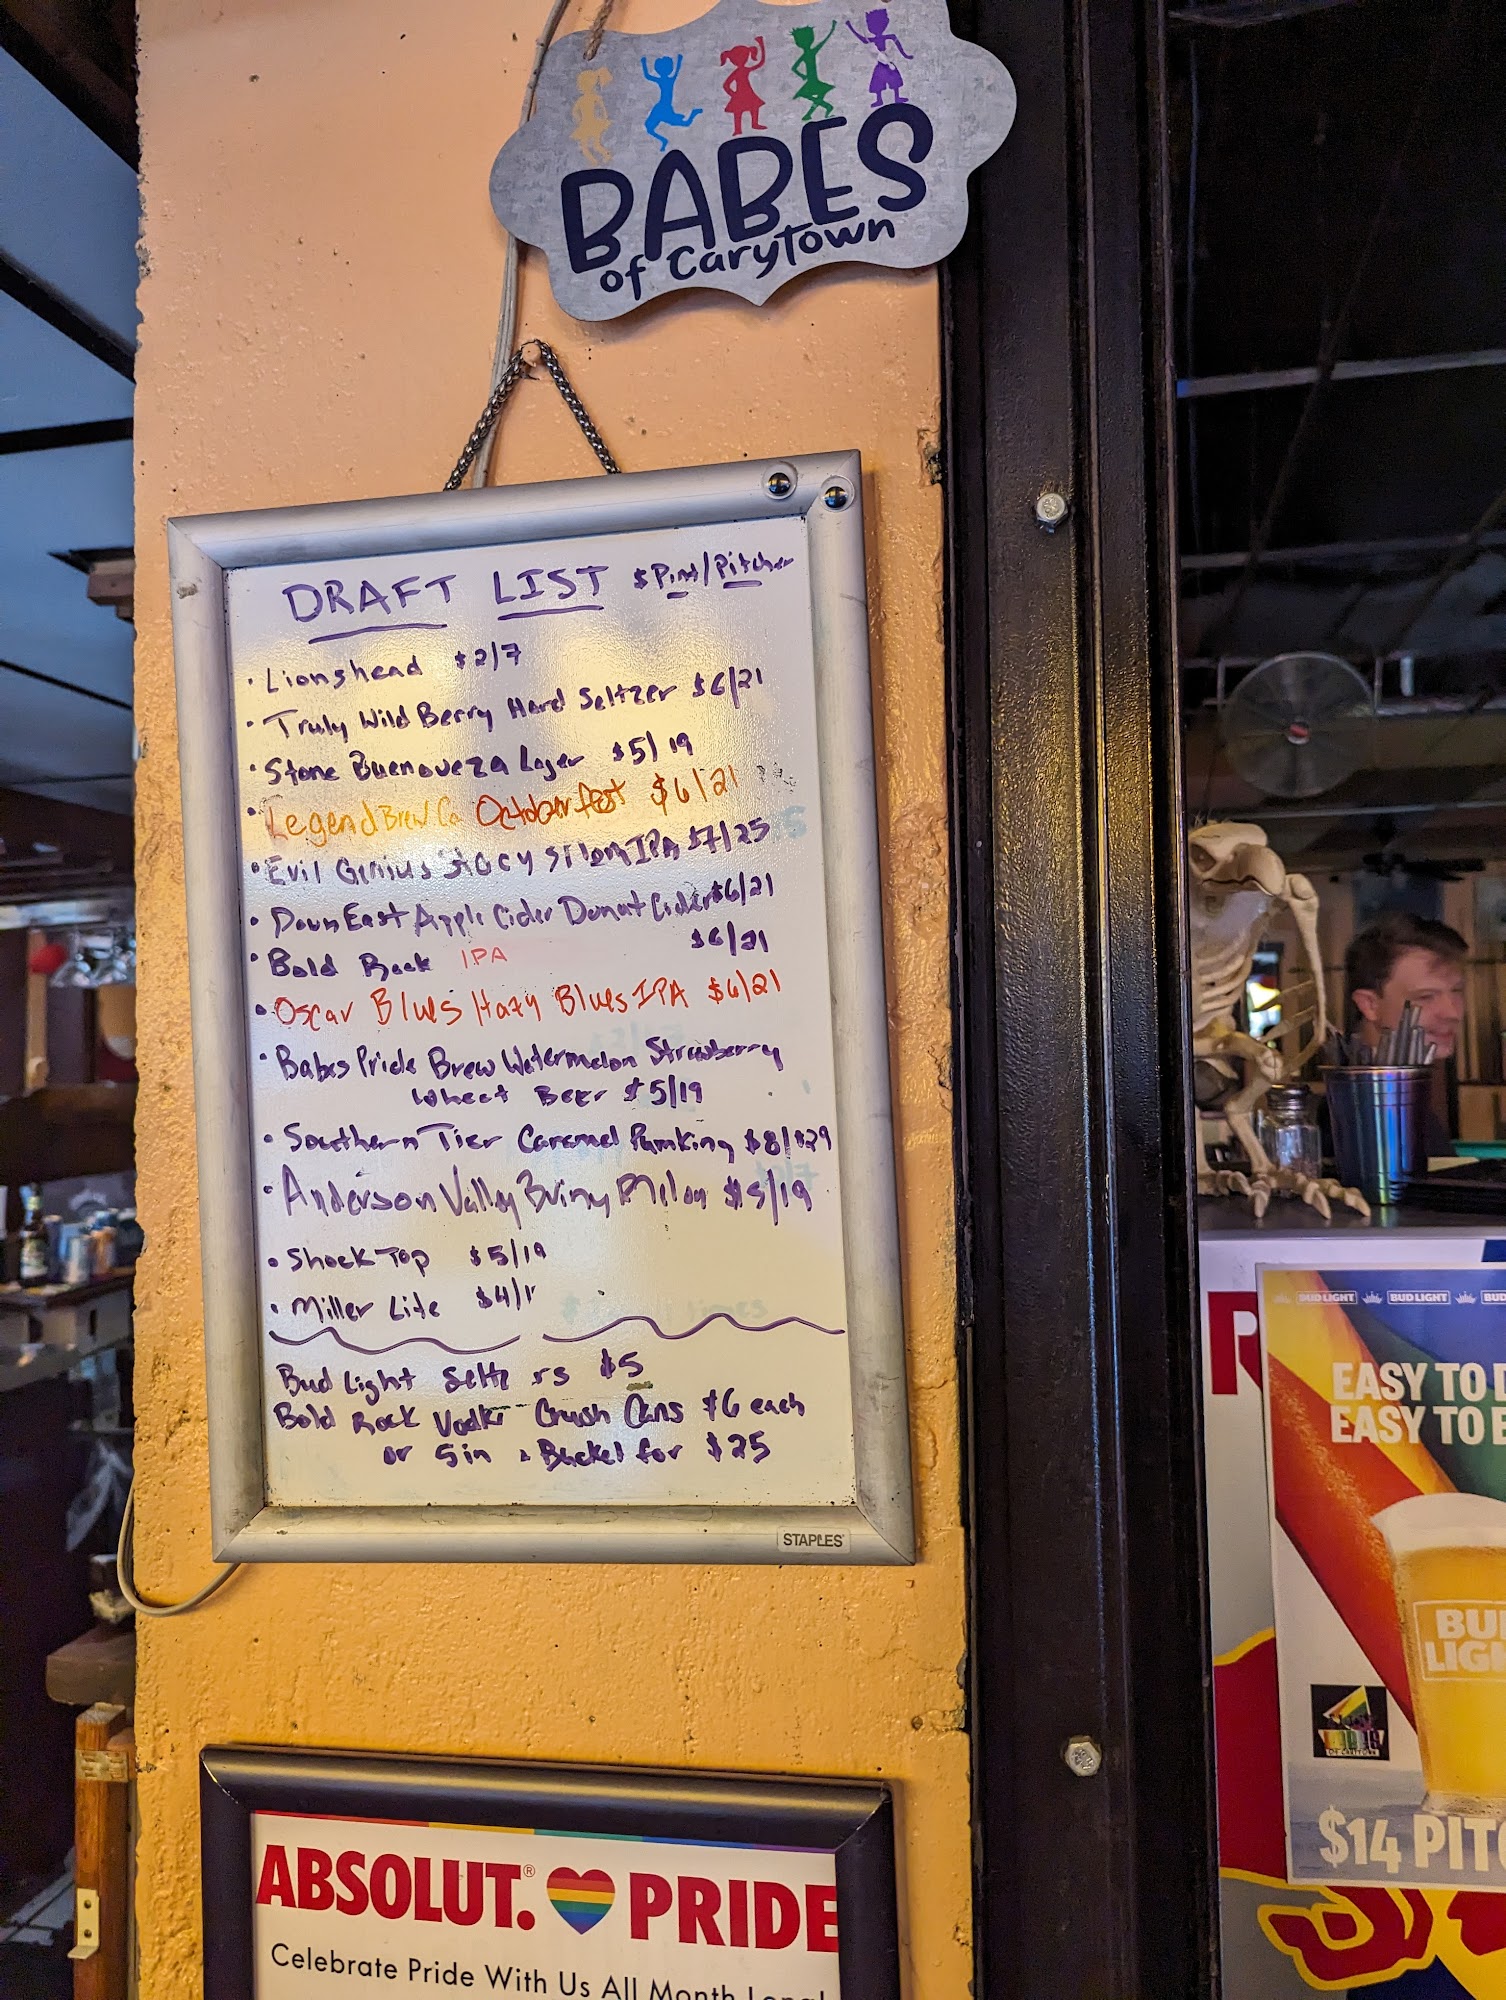 BABES
of Carytown
DRAFT LIST $Pint/Pitcher
• Lionshead $2/7
• Truly Wild Berry Hard Seltzer $6/21
• Stone Buenoveza Lager $5/19
• Legend Brew Co Octoberfest $6/21
• Evil Genius Stacy's Mom IPA $7/25
• Down East Apple Cider Donut Cider $6/21
• Bold Rock IPA $6/21
• Oscar Blues Hazy Blues IPA $6/21
• Babes Pride Brew Watermelon Strawberry
Wheat Beer $5/19
• Southern Tier Caramel Pumking $8/$29
• Anderson Valley Briny Melon $5/19
• Shock Top $5/19
• Miller Lite $4/1
Bud Light Seltz rs $5
Bold Rock Vodk Crush Cans $6 each
or 5 in a Bucket for $25
STAPLES
ABSOLUT. PRIDE
Celebrate Pride With Us All Month Long!
BUD LIGHT BUD LIGHT BUD
EASY TO
EASY TO
BUD
LIGHT
$14 PITC